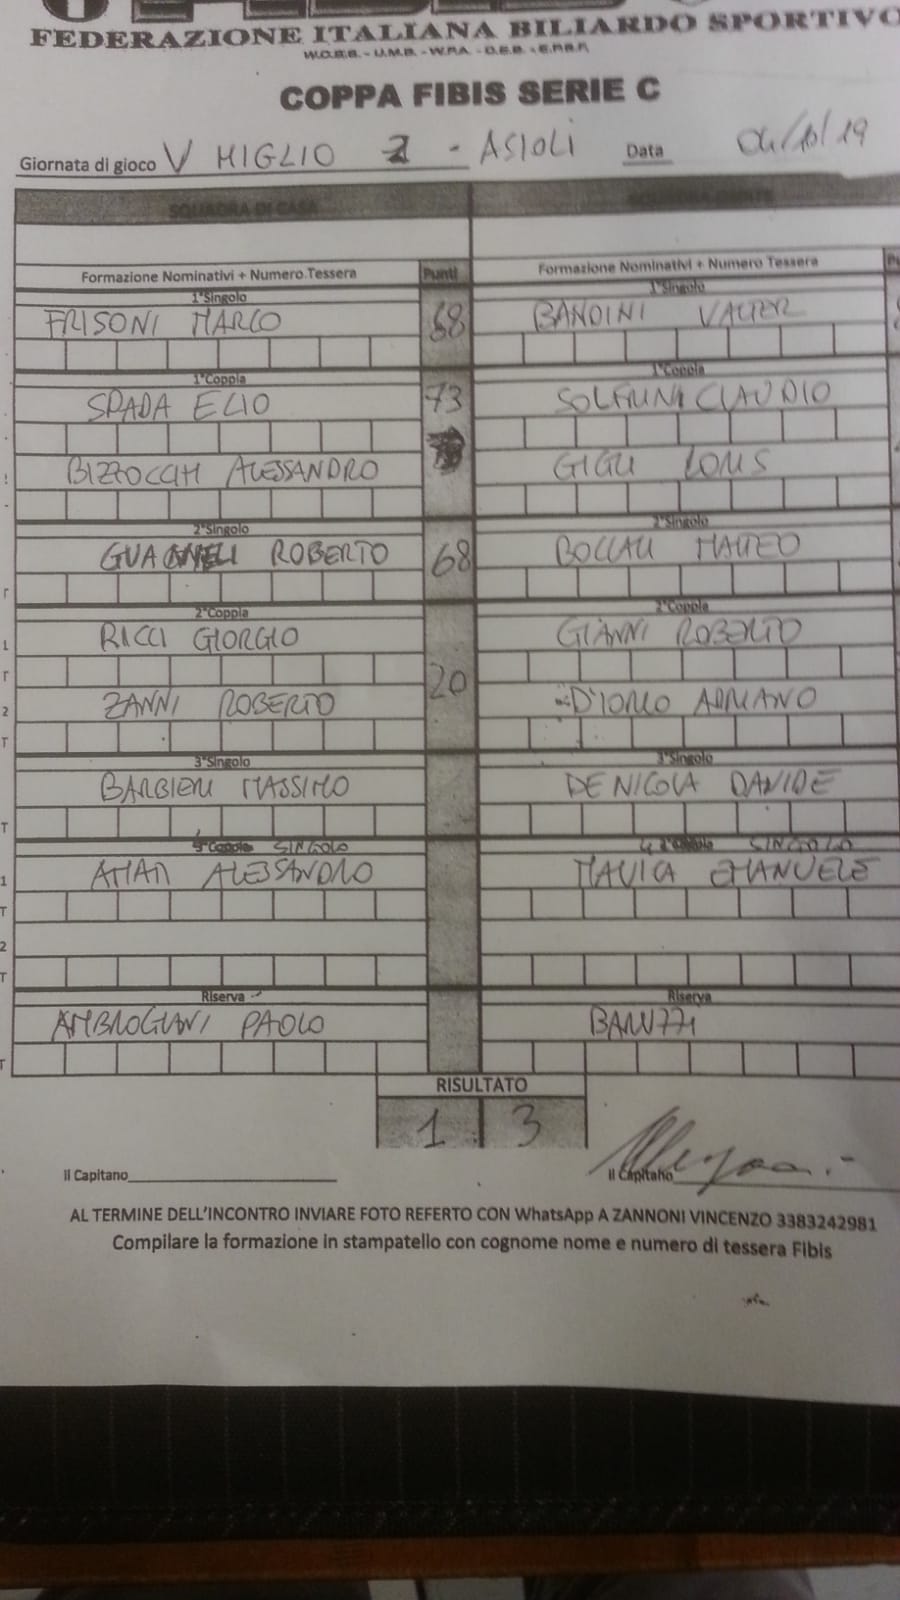 FEDERAZIONE ITALIANA BILIARDO SPORTIVO
COPPA FIBIS SERIE C
Giornata di gioco V MIGLIO 2 - ASIOLI Data 04/10/19
SQUADRA DI CASA
Formazione Nominativi + Numero Tessera Punti Formazione Nominativi + Numero Tessera
1°Singolo 1°Singolo
FRISONI MARCO 68 BANDINI VALTER
1°Coppia 1°Coppia
SPADA ELIO 73 CLAUDIO
BIZZOCCHI ALESSANDRO GIGLI
2°Singolo 2°Singolo
ROBERTO 68 MATTEO
2°Coppia 2°Coppia
RICCI GIORGIO GIANNI ROBERTO
20
ZANNI ROBERTO ADRIANO
3°Singolo 3°Singolo
BARBIERI MASSIMO DE NICOLA DAVIDE
SINGOLO 4 SINGOLO
ALESSANDRO EMANUELE
Riserva Riserva
AMBROGIANI PAOLO
RISULTATO
1 3
Il Capitano Il Capitano
AL TERMINE DELL'INCONTRO INVIARE FOTO REFERTO CON WhatsApp A ZANNONI VINCENZO 3383242981
Compilare la formazione in stampatello con cognome nome e numero di tessera Fibis